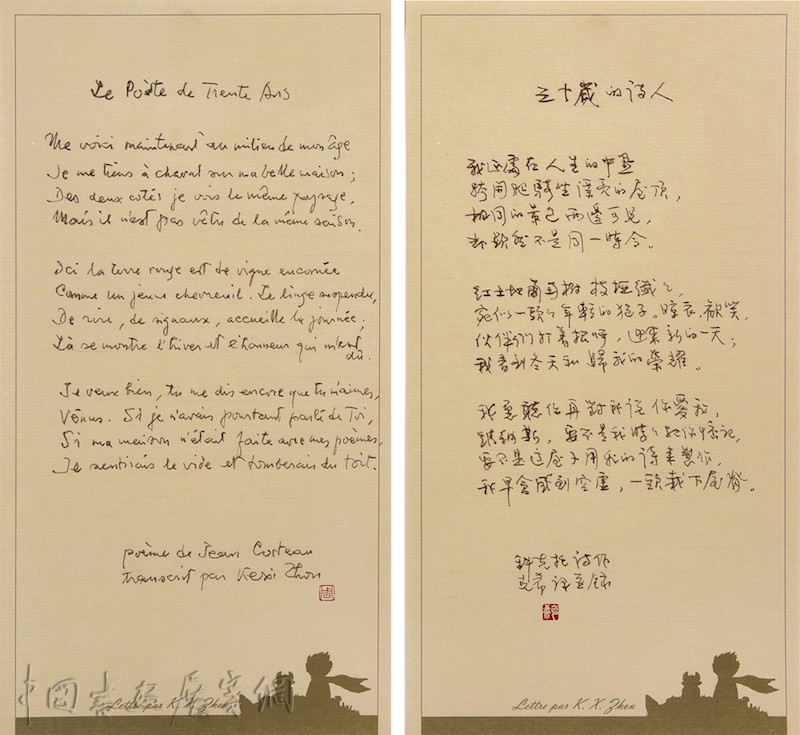 Le Poète de Trente Ans
Me voici maintenant au milieu de mon âge
Je me tiens à cheval sur ma belle maison;
Des deux cotés je vois le même paysage,
Mais il n'est pas vêtu de la même saison.
Ici la terre rouge est de vigne encornée
Comme un jeune chevreuil. Le linge suspendu,
De rire, de signaux, accueille la journée;
Là se montre l'hiver et l'honneur qui m'est
dû.
Je veux bien, tu me dis encore que tu m'aimes,
Vénus. Si je n'avais pourtant parlé de Toi,
Si ma maison n'était faite avec mes poèmes,
Je sentirais le vide et tomberais du toit.
poème de Jean Cocteau
transcrit par Kexi Zhou
Lettre par K. X. Zhou
三十歲的诗人
我正處在人生的中
跨開腿騎坐漂亮的屋顶,
相同的景色两邊可見,
却顯然不是同一時令。
红土地葡萄樹枝桠纖々,
宛似一頭々年轻的狍子。晾衣,歡笑,
伙伴們打着招呼,迎来新的一天;
我看到冬天和歸我的榮耀。
我愿聽你再對我说你愛我,
維纳斯,要不是我時々把你惦記,
要不是这屋子用我的诗来製作,
我早會感到空虚,一頭栽下屋脊。
科克托诗作
克希译並録
Lettre par K. X. Zhou